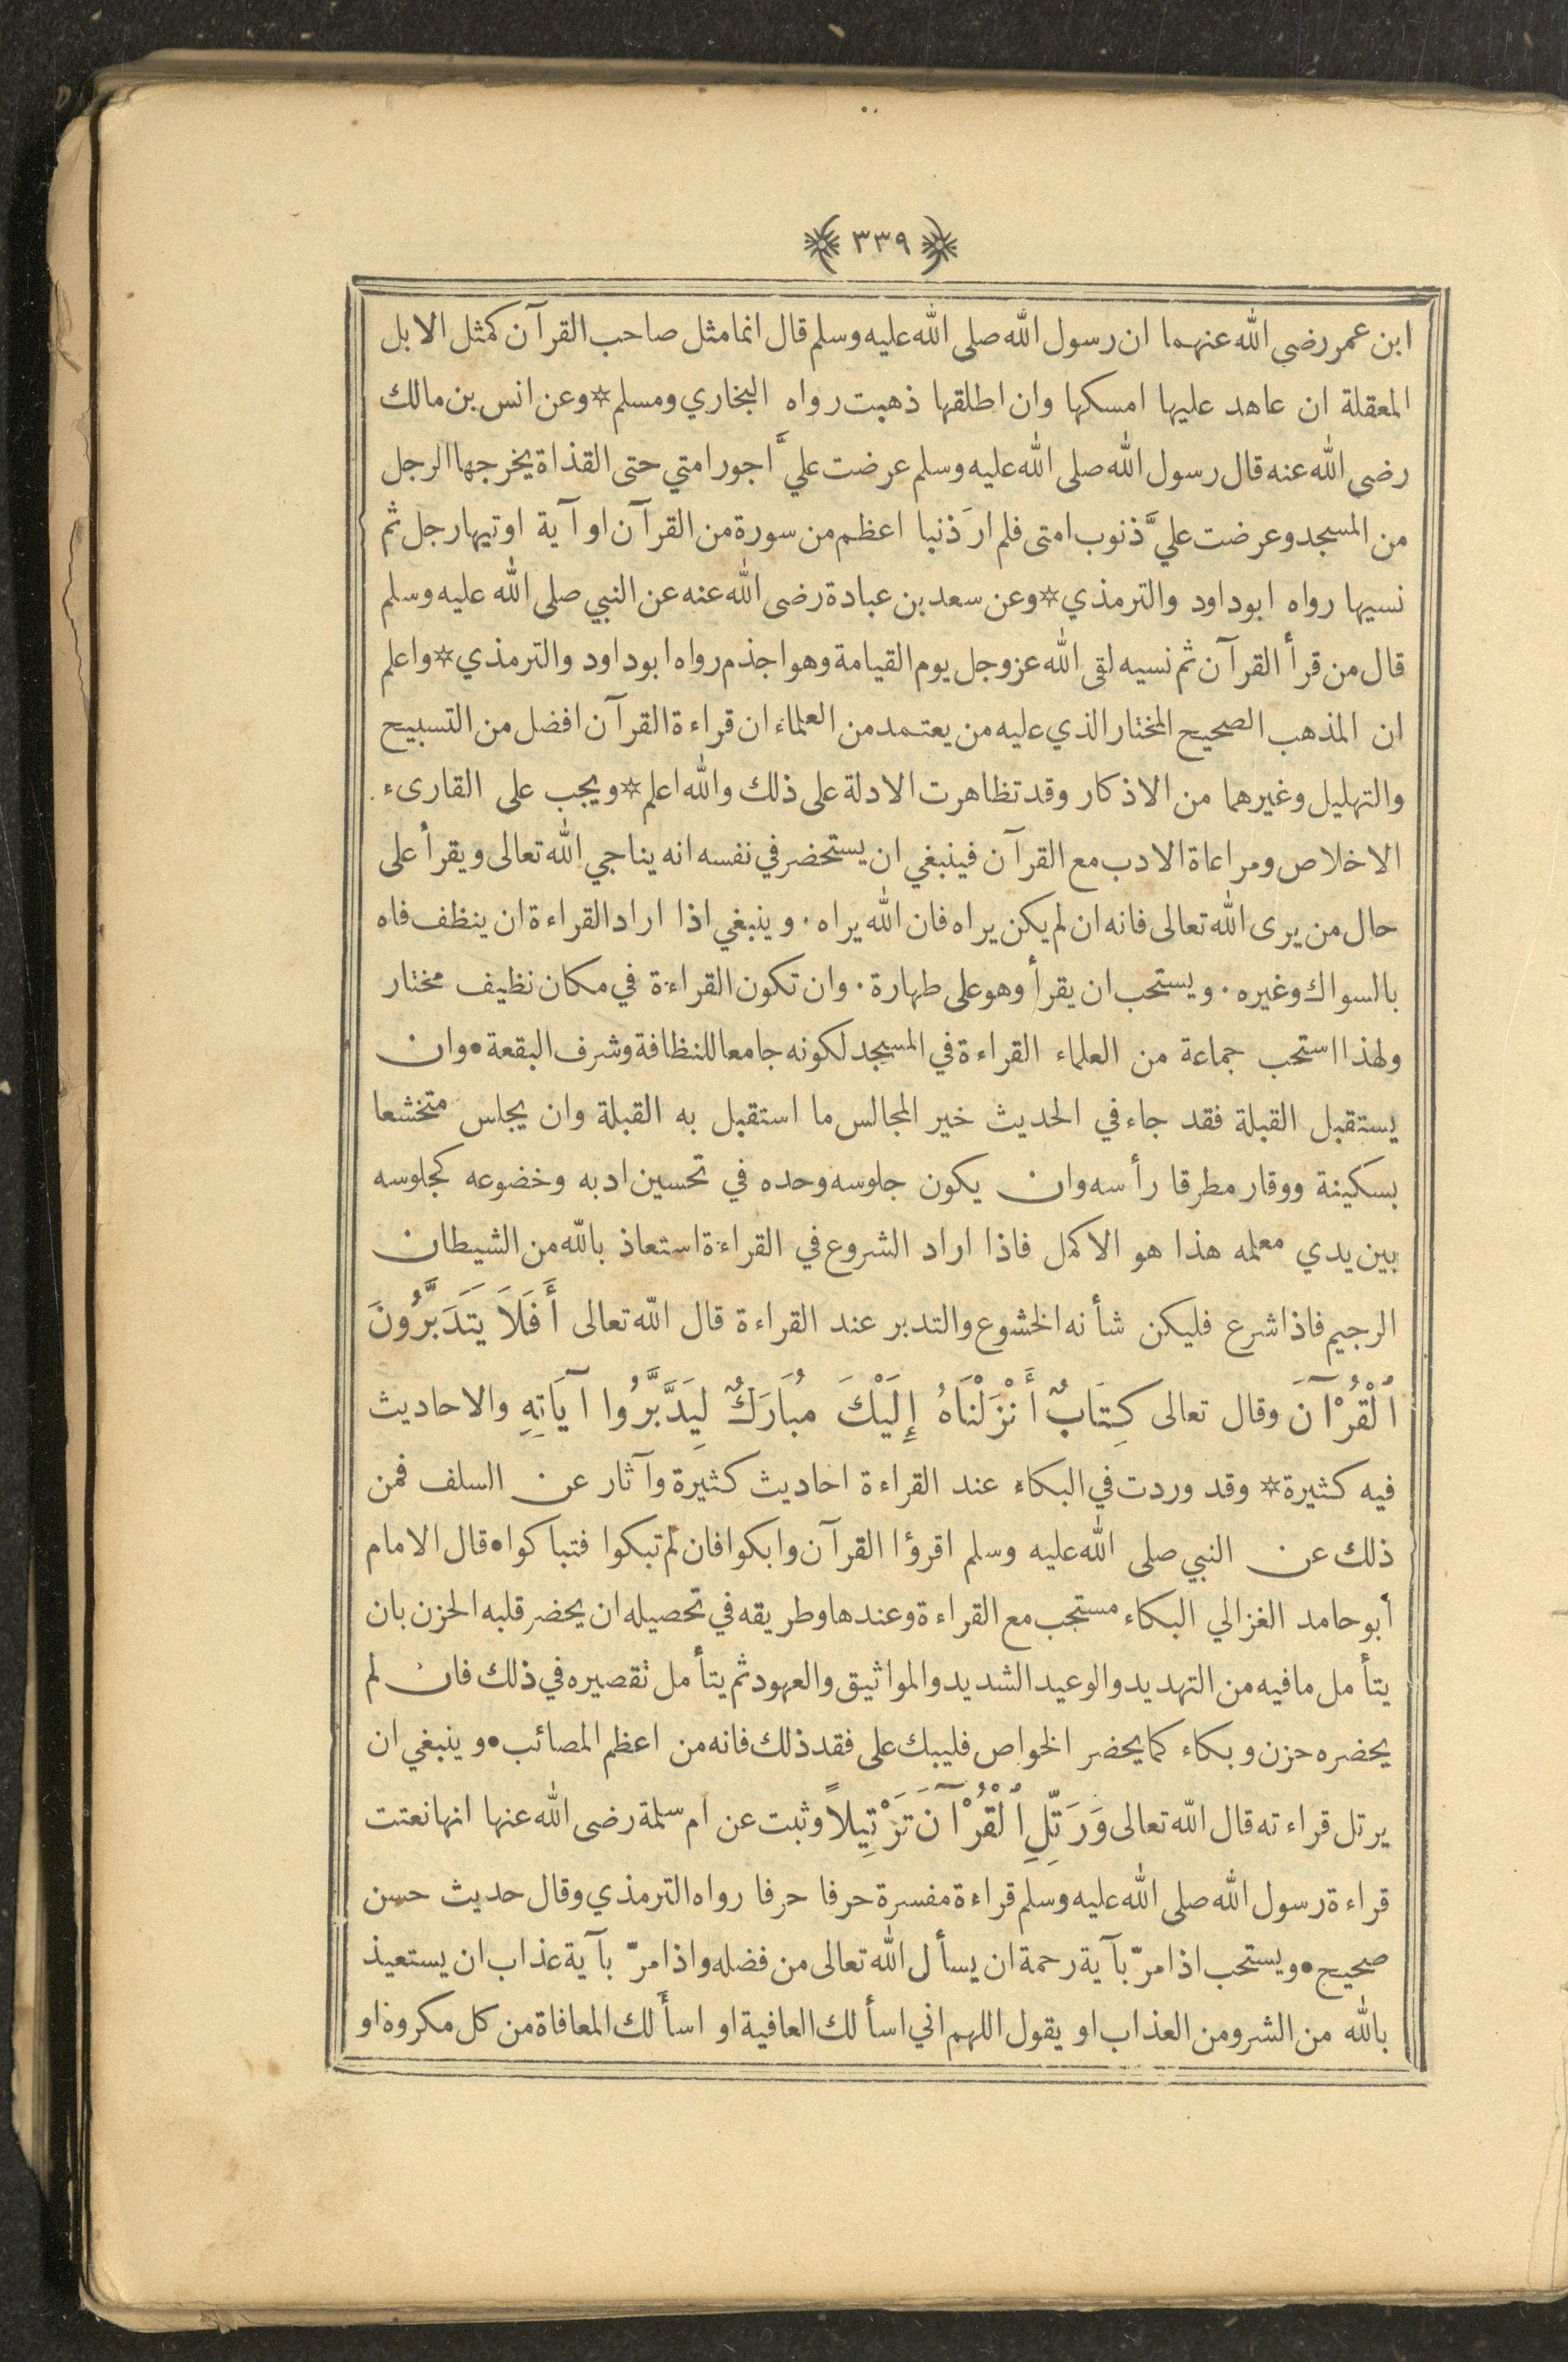 ٣٣٩
ابن عمر رضي الله عنهما ان رسول الله صلى الله عليه وسلم قال انما مثل صاحب القرآن كمثل الابل
المعقلة ان عاهد عليها امسكها وان اطلقها ذهبت رواه البخاري ومسلم * وعن انس بن مالك
رضى الله عنه قال رسول الله صلى الله عليه وسلم عرضت عليَّ اجور امتي حتى القذاة يخرجها الرجل
من المسجد وعرضت عليَّ ذنوب امتى فلم ارَ ذنبا اعظم من سورة من القرآن او آية اوتيها رجل ثم
نسيها رواه ابو داود والترمذي * وعن سعد بن عبادة رضى الله عنه عن النبي صلى الله عليه وسلم
قال من قرأ القرآن ثم نسيه لقى الله عز وجل يوم القيامة وهو اجذم رواه ابو داود والترمذي * واعلم
ان المذهب الصحيح المختار الذي عليه من يعتمد من العلماء ان قراءة القرآن افضل من التسبيح
والتهليل وغيرهما من الاذكار وقد تظاهرت الادلة على ذلك والله اعلم * ويجب على القارىء
الاخلاص ومراعاة الادب مع القرآن فينبغي ان يستحضر في نفسه انه يناجي الله تعالى ويقرأ على
حال من يرى الله تعالى فانه ان لم يكن يراه فان الله يراه . وينبغي اذا اراد القراءة ان ينظف فاه
بالسواك وغيره . ويستحب ان يقرأ وهو على طهارة . وان تكون القراءة في مكان نظيف مختار
ولهذا استحب جماعة من العلماء القراءة في المسجد لكونه جامعا للنظافة وشرف البقعة • وان
يستقبل القبلة فقد جاء في الحديث خير المجالس ما استقبل به القبلة وان يجلس متخشعا
بسكينة ووقار مطرقا رأسه وان يكون جلوسه وحده في تحسين ادبه وخضوعه كجلوسه
بين يدي معلمه هذا هو الاكمل فاذا اراد الشروع في القراءة استعاذ بالله من الشيطان
الرجيم فاذا شرع فليكن شأنه الخشوع والتدبر عند القراءة قال الله تعالى أَفَلَا يَتَدَبَّرُونَ
ٱلْقُرْآنَ وقال تعالى كِتَابٌ أَنْزَلْنَاهُ إِلَيْكَ مُبَارَكٌ لِيَدَّبَّرُوا آيَاتِهِ والاحاديث
فيه كثيرة * وقد وردت في البكاء عند القراءة احاديث كثيرة وآثار عن السلف فمن
ذلك عن النبي صلى الله عليه وسلم اقرؤا القرآن وابكوا فان لم تبكوا فتباكوا • قال الامام
أبو حامد الغزالي البكاء مستحب مع القراءة وعندها وطريقه في تحصيله ان يحضر قلبه الحزن بان
يتأمل ما فيه من التهديد والوعيد الشديد والمواثيق والعهود ثم يتأمل تقصيره في ذلك فان لم
يحضره حزن وبكاء كما يحضر الخواص فليبك على فقد ذلك فانه من اعظم المصائب • وينبغي ان
يرتل قراءته قال الله تعالى وَرَتِّلِ ٱلْقُرْآنَ تَرْتِيلاً وثبت عن ام سلمة رضى الله عنها انها نعتت
قراءة رسول الله صلى الله عليه وسلم قراءة مفسرة حرفا حرفا رواه الترمذي وقال حديث حسن
صحيح • ويستحب اذا مرّ بآية رحمة ان يسأل الله تعالى من فضله واذا مرّ بآية عذاب ان يستعيذ
بالله من الشر ومن العذاب او يقول اللهم اني اسألك العافية او اسألك المعافاة من كل مكروه او